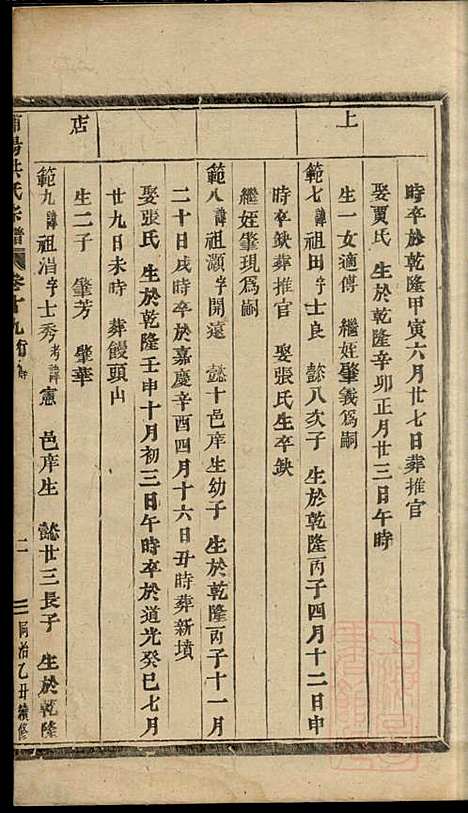 上店
時卒於乾隆甲寅六月廿七日葬推官
娶賈氏 生於乾隆辛卯正月廿三日午時
生一女適傅 繼姪肇義爲嗣
範七諱祖田字士良 懿八次子 生於乾隆丙子四月十二日申
時卒缺葬推官 娶張氏生卒缺
繼姪肇現爲嗣
範八諱祖灝字開遠 懿十邑庠生幼子 生於乾隆丙子十一月
二十日戌時卒於嘉慶辛酉四月十六日丑時葬新墳
娶張氏 生於乾隆壬申十月初三日午時卒於道光癸巳七月
廿九日未時 葬饅頭山
生二子 肇芳 肇華
範九諱祖湄字士秀考諱憲 邑庠生 懿廿三長子 生於乾隆
浦陽洪氏宗譜 卷十九 二 同治乙丑續修